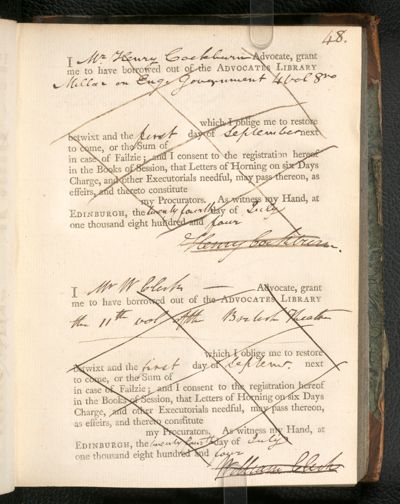 48.
I Mr Henry Cockburn Advocate, grant
me to have borrowed out of the ADVOCATES LIBRARY
Millar on Engl Government 4 vol 8vo
which I oblige me to restore
betwixt and the first day of September next
to come, or the Sum of
in case of Failzie; and I consent to the registration hereof
in the Books of Session, that Letters of Horning on six Days
Charge, and other Executorials needful, may pass thereon, as
effeirs, and thereto constitute
my Procurators. As witness my Hand, at
EDINBURGH, the twenty fourth day of July
one thousand eight hundred and four
Henry Cockburn.
I Mr W Clerk — Advocate, grant
me to have borrowed out of the ADVOCATES LIBRARY
the 11th vol of the British Theatre
which I oblige me to restore
betwixt and the first day of Septemr. next
to come, or the Sum of
in case of Failzie; and I consent to the registration hereof
in the Books of Session, that Letters of Horning on six Days
Charge, and other Executorials needful, may pass thereon,
as effeirs, and thereto constitute
my Procurators. As witness my Hand, at
EDINBURGH, the twenty fourth day of July
one thousand eight hundred and four
William Clerk